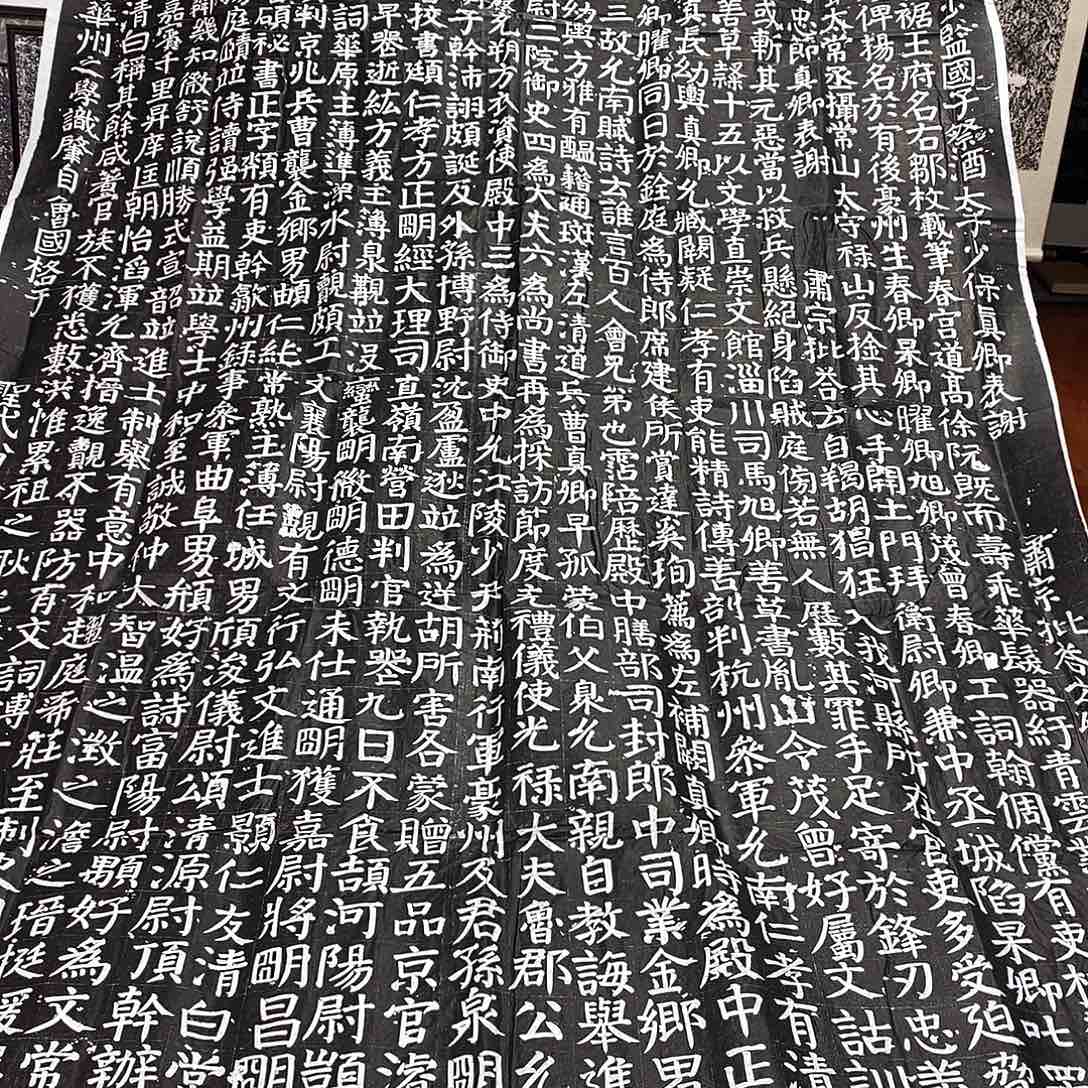 監國子祭酒太子少保真卿表謝 肅宗批答
裾王府名右鄒枚載筆春宮道高徐阮既而壽乖華髮器紆青雲
俾揚名於有後豪州生春卿杲卿曜卿旭卿茂曾春卿工詞翰倜儻有吏
太常丞攝常山太守祿山反捡其心手開土門拜衛尉卿兼中丞城陷杲卿叱
忠節真卿表謝 肅宗批答云自羯胡猖狂入我河縣所在官吏多受迫
或斬其元惡當以救兵懸絕身陷賊庭傍若無人歷數其罪手足寄於鋒刃忠
善草隸十五以文學直崇文館淄川司馬旭卿善草書胤山令茂曾好屬文詁訓
真長幼輿真卿允臧闕疑仁孝有吏能精詩傳善剖判杭州叅軍允南仁孝有清
卿曜卿同日於銓庭為侍郎席建侯所賞達奚珣薦為左補闕真卿時為殿中正
三故允南賦詩云誰言百人會兄弟也霑陪歷殿中膳部司封郎中司業金鄉男
幼輿方雅有醞藉通班漢左清道兵曹真卿早孤蒙伯父泉允南親自教誨舉進
尉三院御史四為大夫六為尚書再為採訪節度充禮儀使光祿大夫魯郡公允
察允朔方衣資使殿中三為侍御史中允江陵少尹荊南行軍豪州及君孫泉明
子幹沛詡頗誕及外孫博野尉沈盈盧逖並為逆胡所害各蒙贈五品京官濬
校書頲仁孝方正明經大理司直嶺南營田判官執喪九日不食頡河陽尉
早喪逝紘方義主簿泉覿並沒蠻襲明徽明德明未仕通明獲嘉尉將明昌明
詞華原主薄進深水尉覿頗工文襄陽尉覿有文行弘文進士顥仁友清白常
判京兆兵曹襲金鄉男頔仁純常熟主薄任城男頎浚儀尉公頌清源尉頂幹辦
碩秘書正字纇有吏幹歙州錄事叅軍曲阜男頍好為詩富陽尉顒好為文常
庭頤並侍讀強學益期並學士中和至誠敬仲大智溫之澂之澹之瑨挺援
機知微舒說順勝式宣韶並進士制舉有意中和超庭莊至
嘉賓千里昇庠匡朝怡滔渾允濟摺逸覿不器防有文詞博
清白稱其餘咸著官族不獲悉數洪惟累祖之耿
華州之學識肇自會國格于 聖代